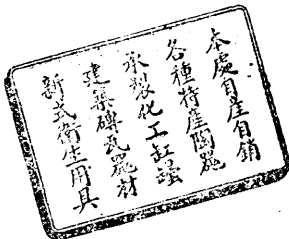 本處自產自銷
各種特產陶器
承製化工缸罎
建築磚瓦器材
新式衛生用具